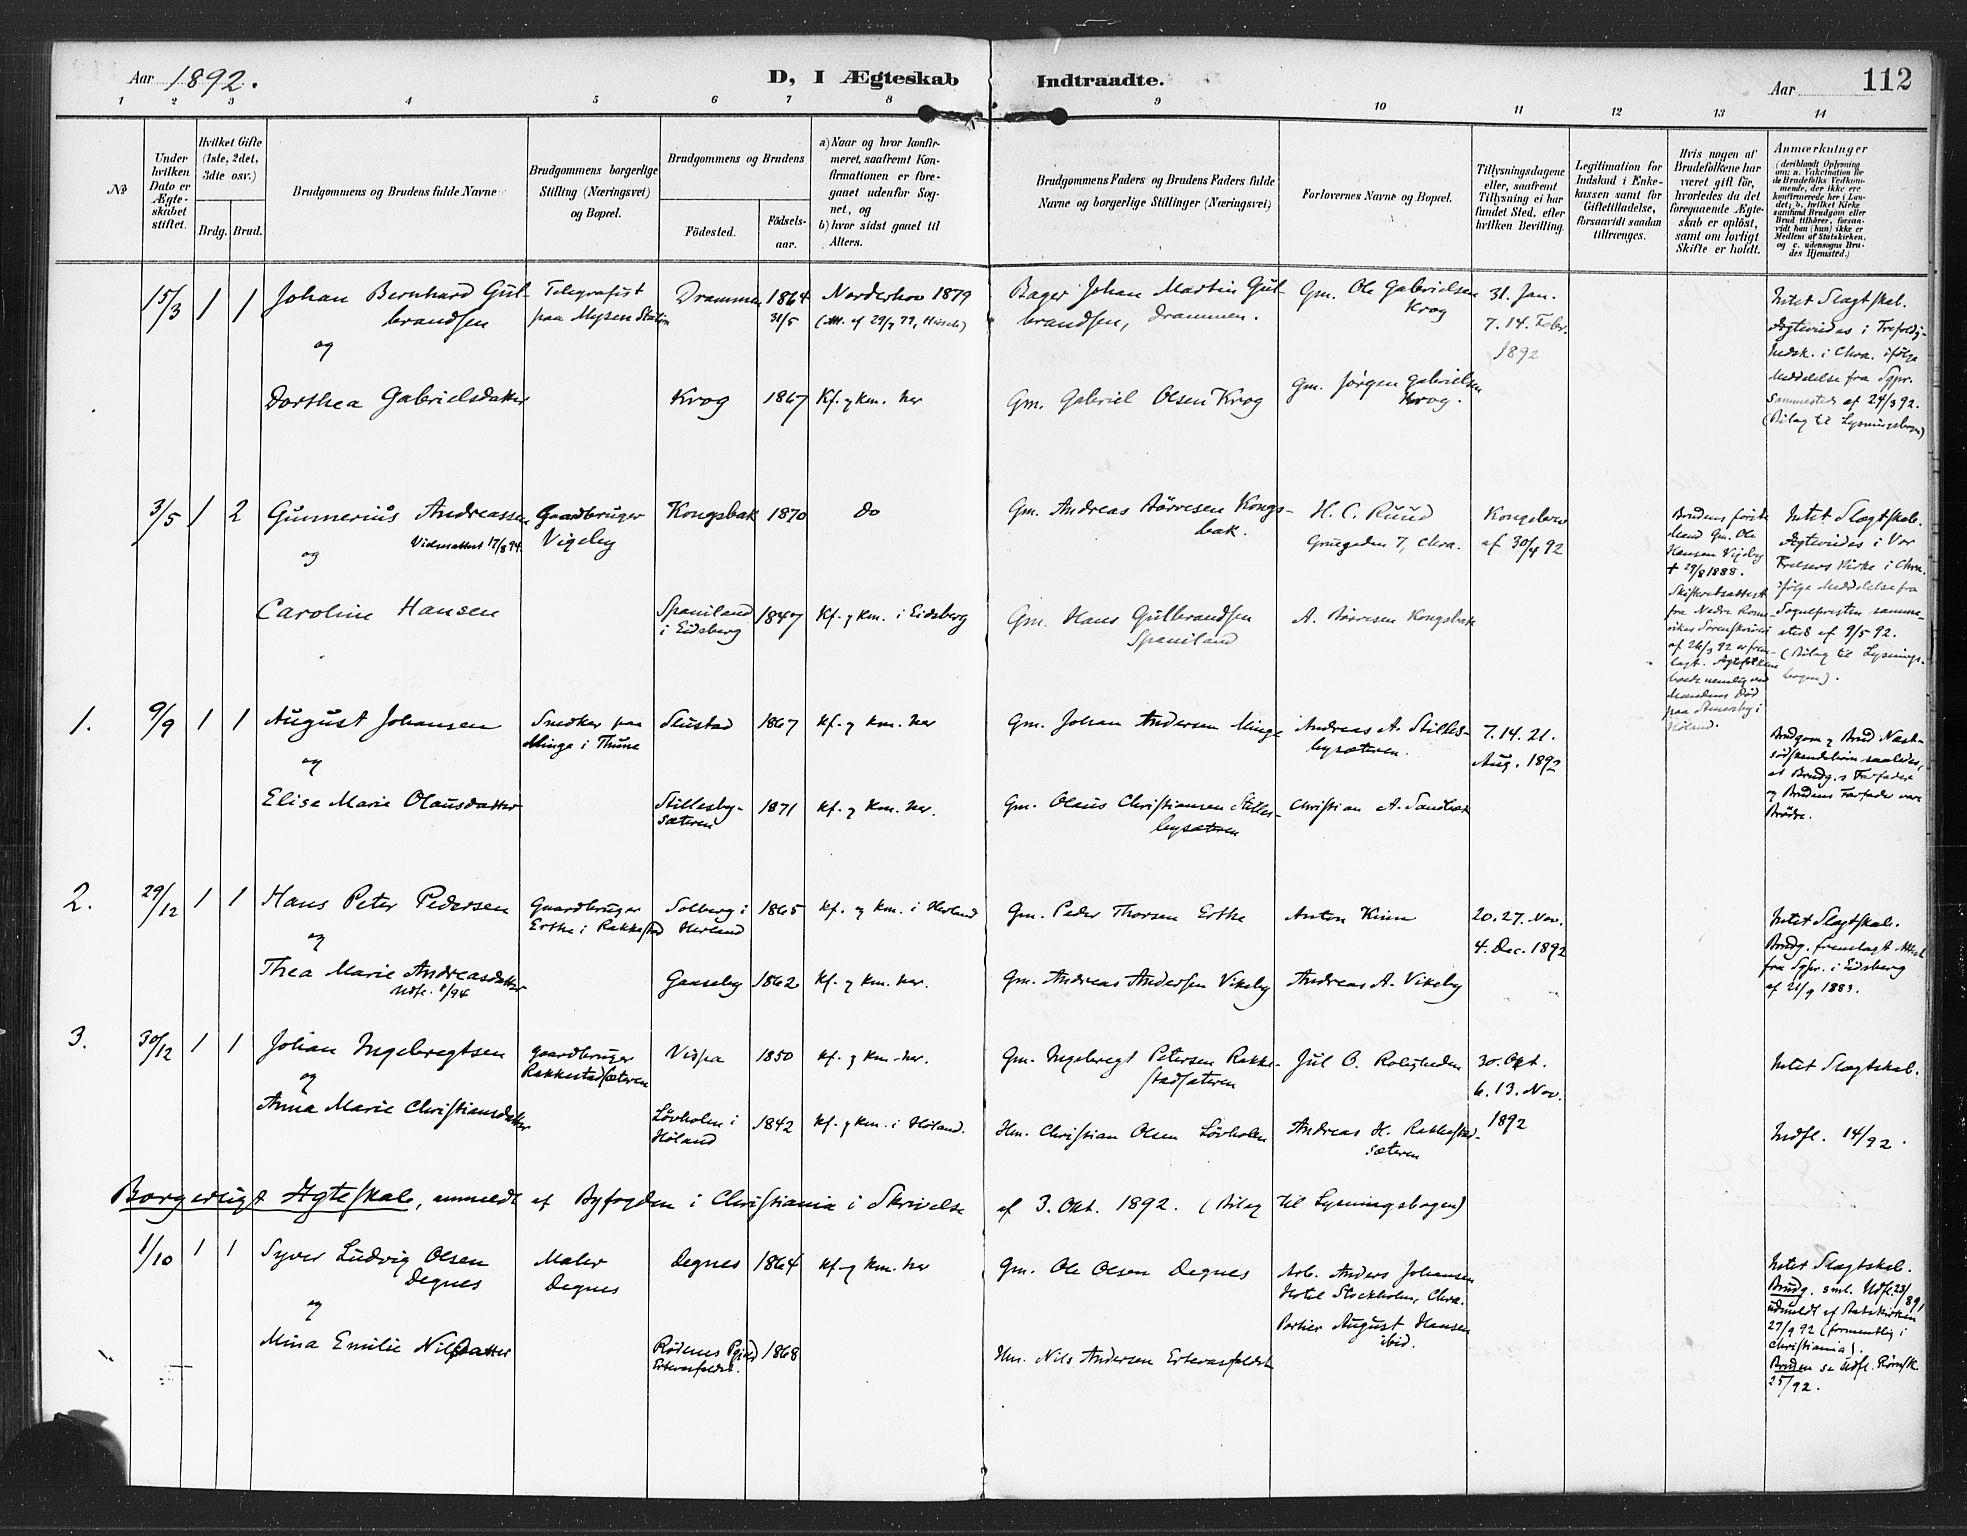 Aar 1892.
D, I Ægteskab Indtraadte.
Aar 112
1 2 3 4 5 6 7 8 9 10 11 12 13 14
No
Under hvilken Dato er Ægteskabet stiftet.
Hvilket Gifte (1ste, 2det, 3die osv.)
Brdg. Brud.
Brudgommens og Brudens fulde Navne
Brudgommens borgerlige Stilling (Næringsvei) og Bopæl.
Brudgommens og Brudens
Fødested.
Fødselsaar.
a) Naar og hvor konfirmeret, saafremt Konfirmationen er foregaaet udenfor Sognet, og
b) hvor sidst gaaet til Alters.
Brudgommens Faders og Brudens Faders fulde Navne og borgerlige Stillinger (Næringsvei)
Forlovernes Navne og Bopæl.
Tillysningsdagene eller, saafremt Tillysning ei har fundet Sted, efter hvilken Bevilling.
Legitimation for Indskud i Enkekassen samt for Giftetilladelse, forsaavidt saadan tiltrænges.
Hvis nogen af Brudefolkene har været gift før, hvorledes da det foregaaende Ægteskab er opløst, samt om lovligt Skifte er holdt.
Anmærkninger
(deriblandt Oplysning om: a. Vakcination for de Brudefolks Vedkommende, der ikke ere konfirmerede her i Landet; b. hvilket Kirkesamfund Brudgom eller Brud tilhører, forsaavidt han (hun) ikke er Medlem af Statskirken, og c. udensogns Brudes Hjemsted.)
15/3 1 1 Johan Bernhard Gulbrandsen
Telegrafist paa Mysen Station
Drammen 1864 31/5
Norderhov 1879
Bager Johan Martin Gulbrandsen, Drammen.
Gm. Ole Gabrielsen Krog
31. Jan. 7. 14. Febr. 1892
Intet Slagtskab. Ægteviedes i Trefoldighedsk. i Chra. ifølge Meddelelse fra Sgpr. sammesteds af 24/3 92. (Bilag til Lysningsbogen)
og
Dorthea Gabrielsdatter
Krog 1867 Kf. og Km. her
Gm. Gabriel Olsen Krog
Gm. Jørgen Gabrielsen Krog.
3/5 1 2 Gunnerius Andreassen
Vidneattest 17/8 94.
Gaardbruger Vigeby
Kongsbak 1870 Do
Gm. Andreas Børresen Kongsbak.
H. C. Ruud
7, Chra.
af 30/4 92
Brudens første Mand Gm. Ole Hansen Vigeby + 29/8 1888.
Skifteretsattest fra Nedre Romerikes Sorenskriveri af 26/3 92 er fremlagt.
Intet Slagtskab. Ægteviedes i Vor Frelsers Kirke i Chra. ifølge Meddelelse fra Sognepresten sammesteds af 9/5 92. (Bilag til Lysningsbogen).
og
Caroline Hansen
Spaniland i Eidsberg 1847 Kf. og Km. i Eidsberg
Gm. Hans Gulbrandsen Spaniland
A. Børresen Kongsbak
1. 9/9 1 1 August Johansen
Snedker paa Minge i Thune
1867 Kf. og Km. her
Gm. Johan Andersen Minge
Andreas A. Stillesbysæteren.
7. 14. 21. Aug. 1892
Brudgom og Brud Næstsødskendebørn saaledes, at Brudg.s Farfader og Brudens Farfader vare Brødre.
og
Elise Marie Olausdatter
Stillesbysæteren 1871 Kf. og Km. her.
Gm. Olaus Christiansen Stillesbysæteren
Christian A. Sandbæk
2. 29/12 1 1 Hans Peter Pedersen
Gaardbruger Erthe i Rakkestad
Solberg i Herland 1865 Kf. og Km. i Herland
Gm. Peder Thorsen Erthe
Anton Kinn
20. 27. Nov. 4. Dec. 1892
Intet Slagtskab. Brudg. fremlagt Attest fra Sgpr. i Eidsberg af 21/9 1883.
og
Thea Marie Andreasdatter
Udfl. 1/94
Gaaseby 1862 Kf. og Km. her.
Gm. Andreas Andersen Vikeby
Andreas A. Vikeby
3. 30/12 1 1 Johan Ingebregtsen
Gaardbruger Rakkestadsæteren
1850 Kf. og Km. her.
Gm. Ingebregt Petersen Rakkestadsæteren
Jul O. Roligheden
30. Okt. 6. 13. Nov. 1892
Intet Slagtskab.
og
Anna Marie Christiansdatter
Løvholen i Høland 1842 Kf. og Km. i Høland.
Hm. Christian Olsen Løvholen
Andreas H. Rakkestadsæteren
Indfl. 14/92.
Borgerligt Ægteskab, anmeldt af Byfogden i Christiania i Skrivelse af 3. Okt. 1892. (Bilag til Lysningsbogen)
1/10 1 1 Syver Ludvig Olsen Degnes
Maler Degnes
Degnes 1864 Kf. og Km. her
Gm. Ole Olsen Degnes
Arb. Anders Johansen Hotel Stockholm, Chra.
Portier August Hansen ibid.
Intet Slagtskab. Brudg. Udfl. 23/891 udmeldt af Statskirken 27/9 92 (formentlig i Christiania). Bruden se Udfl. Rømsk. 25/92.
og
Mina Emilie Nilsdatter
Rødenes Pgjeld 1868
Hm. Nils Andersen